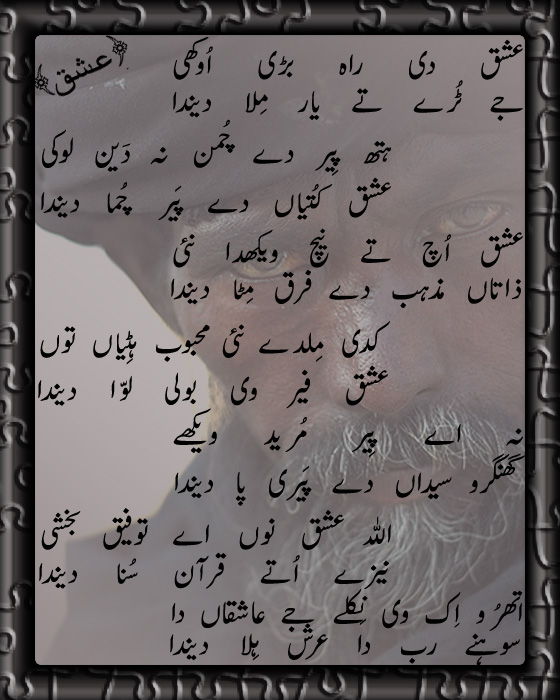 ﴿عشق﴾
عشق دی راہ بڑی اوکھی
جے ٹُرے تے یار مِلا دیندا
ہتھ پِیر دے چُمن نہ دَین لوکی
عشق کُتیاں دے پَیر چُما دیندا
عشق اُچ تے نِیچ ویکھدا نئی
ذاتاں مذہب دے فرق مِٹا دیندا
کدی مِلدے نئی محبوب ہٹِیاں توں
عشق فیر وی بولی لوّا دیندا
نہ اے پِیر مُرید ویکھے
گھنگرو سیداں دے پَیری پا دیندا
اللہ عشق نوں اے توفیق بخشی
نیزے اُتے قرآن سُنا دیندا
اتھرُو اِک وی نِکلے جے عاشقاں دا
سوہنے رب دا عرش ہِلا دیندا